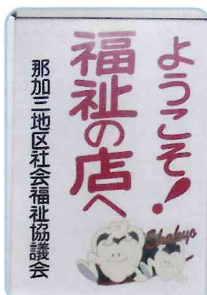 ようこそ！
福祉の店へ
那加三地区社会福祉協議会
Shakyo